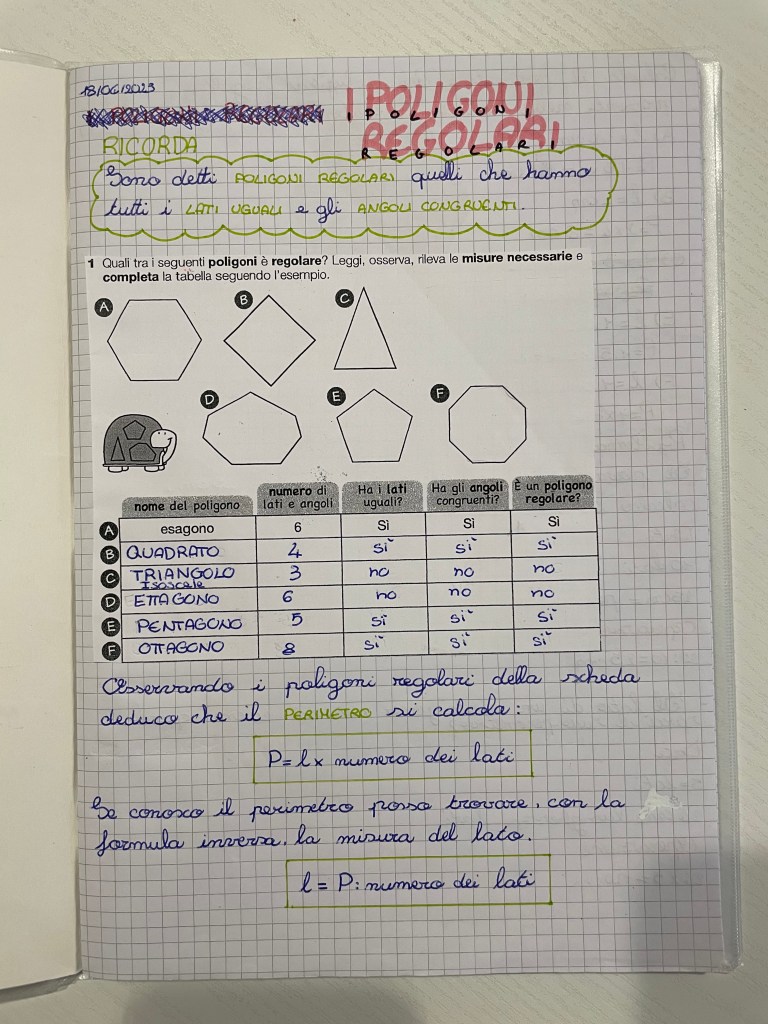 18/04/2023
I POLIGONI
I POLIGONI
REGOLARI
REGOLARI
RICORDA
Sono detti POLIGONI REGOLARI quelli che hanno
tutti i LATI UGUALI e gli ANGOLI CONGRUENTI.
1 Quali tra i seguenti poligoni è regolare? Leggi, osserva, rileva le misure necessarie e
completa la tabella seguendo l'esempio.
A
B
C
D
E
F
nome del poligono
numero di lati e angoli
Ha i lati uguali?
Ha gli angoli congruenti?
È un poligono regolare?
A esagono 6 Sì Sì Sì
B QUADRATO 4 sì sì sì
C TRIANGOLO 3 no no no
Isoscele
D ETTAGONO 6 no no no
E PENTAGONO 5 sì sì sì
F OTTAGONO 8 sì sì sì
Osservando i poligoni regolari della scheda
deduco che il PERIMETRO si calcola:
P=l x numero dei lati
Se conosco il perimetro posso trovare, con la
formula inversa, la misura del lato.
l = P: numero dei lati